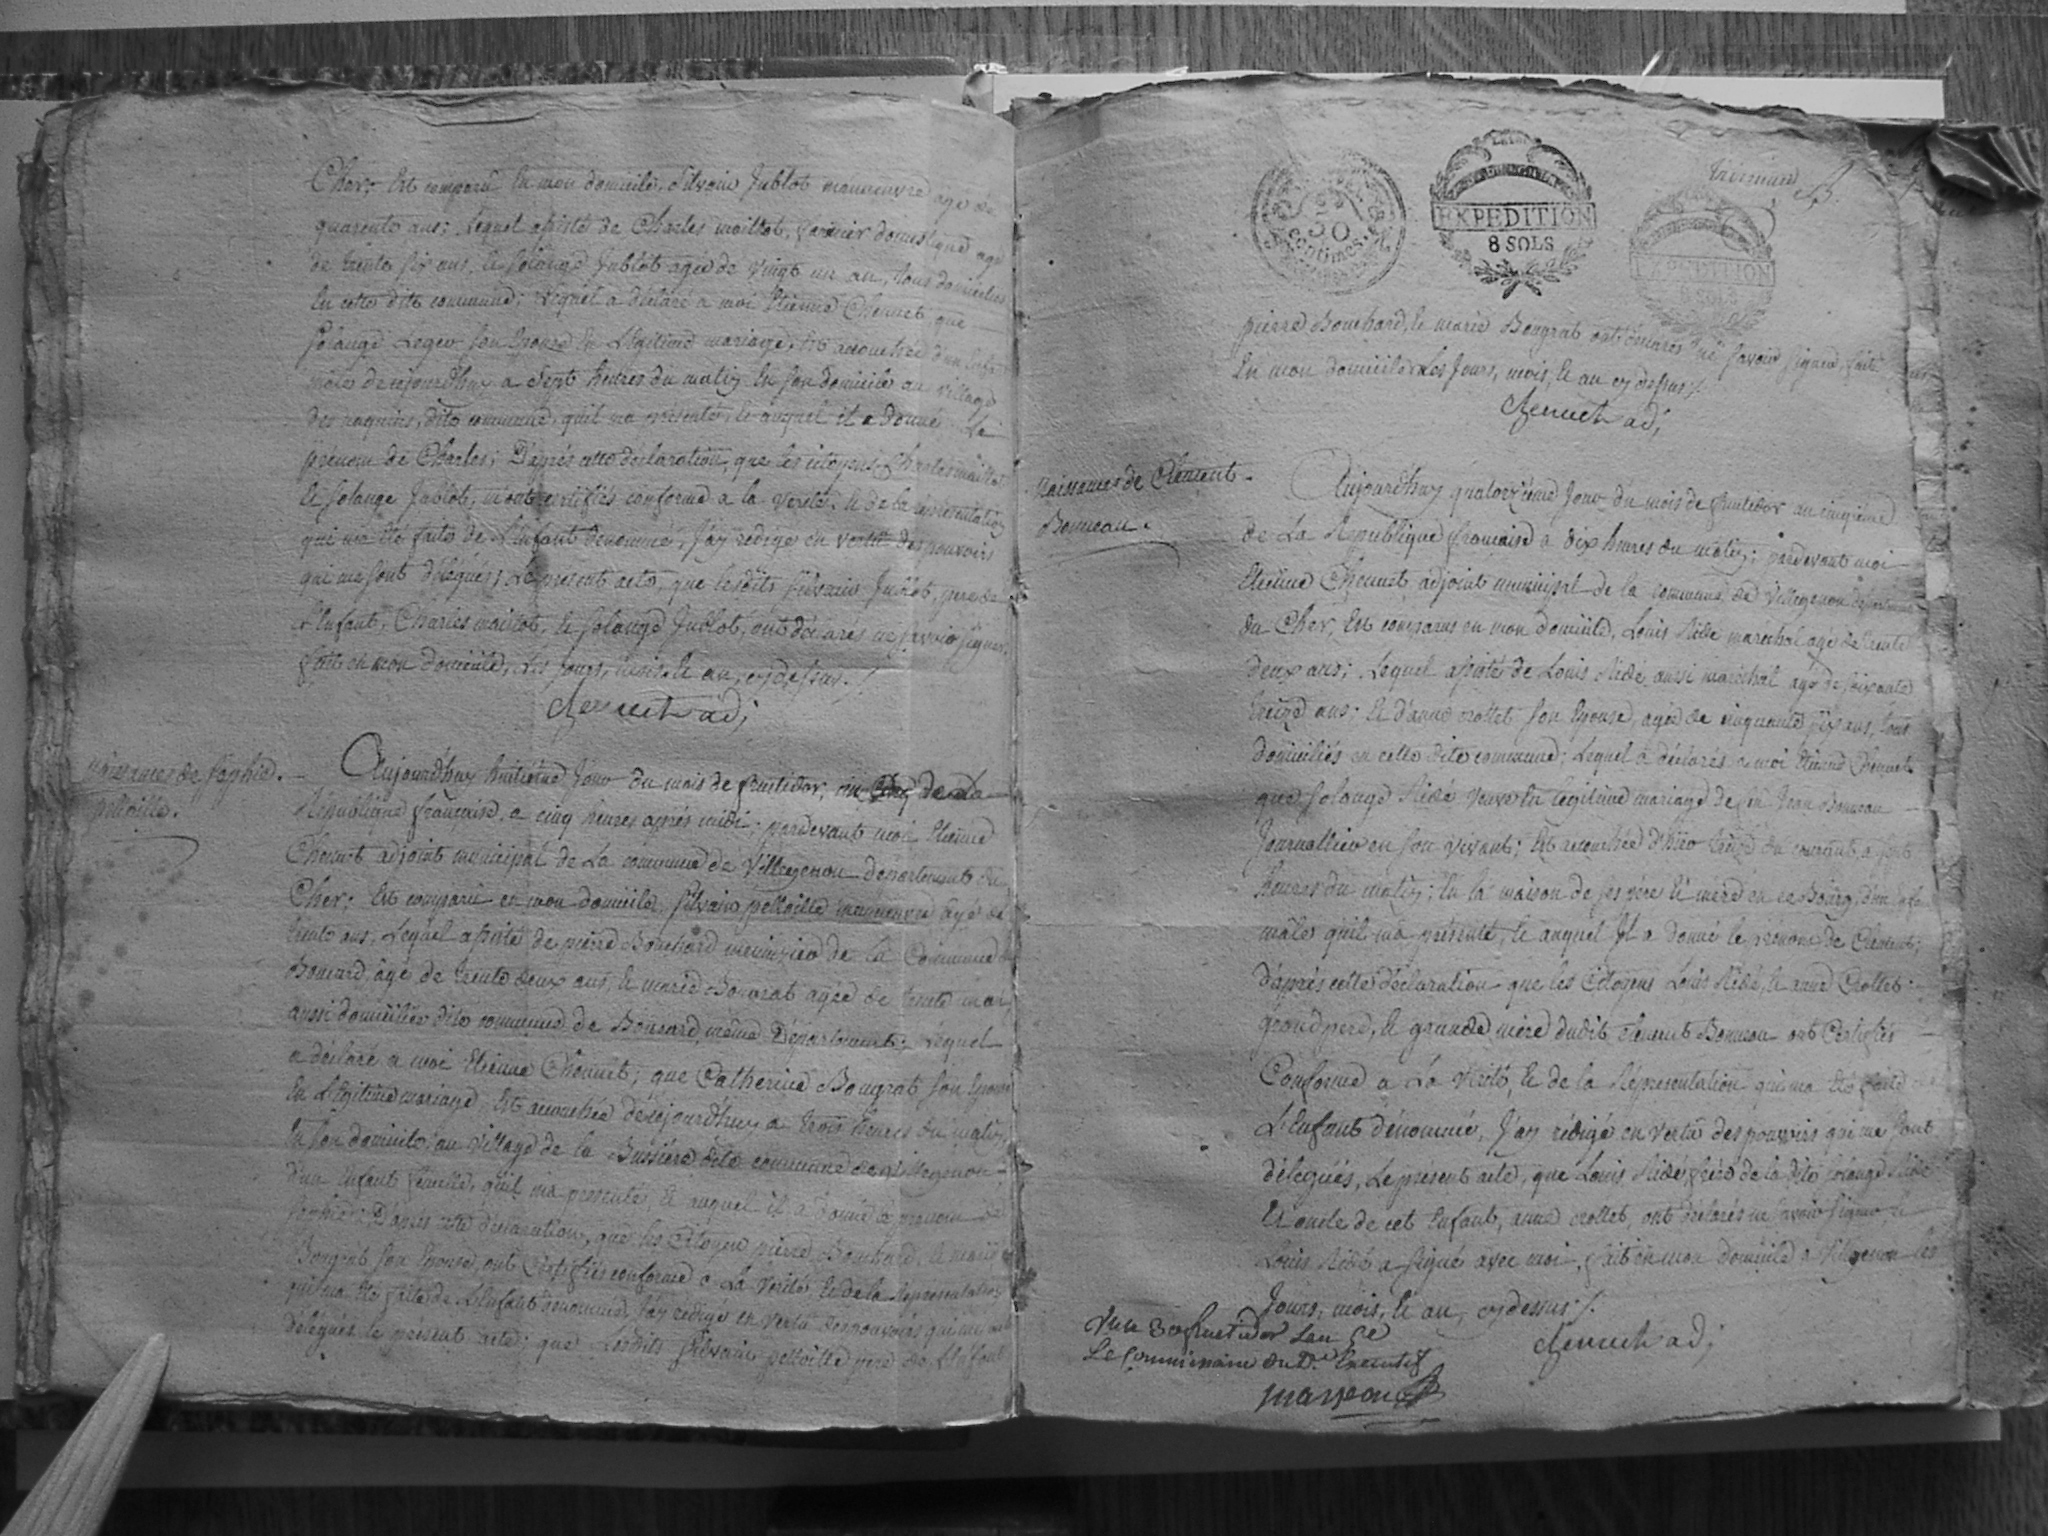 Cher; Est comparu En mon domicile, Silvain Jublot manoeuvre agé de
quarente ans; Lequel assisté de Charles maillot, fermier domestique agé
de trente six ans, Et Solange Jublot agée de vingt un an, tous domiciliés
En cette dite commune; Lequel a déclaré a moi Etienne Chenuet, que
Solange Leger son Epouse En Légitime mariage, Est accouchée d'un Enfant
male de cejourdhuy a Sept heures du matin En son domicile au village
des naquins, dite commune, quil ma présenté, Et auquel il a donné Le
prénom de Charles; D'après cette déclaration que les citoyens Charles maillot
Et Solange Jublot, m'ont certifiés conforme a la verité, Et de la représentation
qui ma Eté faite de L'Enfant denommé, J'ay redigé en vertu des pouvoirs
qui me sont délegués; Le present acte, que lesdits Silvain Jublot, pere de
L'Enfant, Charles maillot, Et Solange Jublot, ont déclarés ne savoir signer.
fait en mon domicile, Les jours, mois, Et an, cy dessus. /
Chenuet adj
naissances de Sophie
pelloille.
Aujourdhuy huitième Jour du mois de fructidor, an Cinq de La
République française, a cinq heures après midi; pardevant moi Etienne
Chenuet adjoint municipal de La commune de Villegenon département du
Cher; Est comparu en mon domicile, Silvain pelloille manoeuvre agé de
trente ans, Lequel assisté de pierre Bouchard menuizier de La Commune de
Boucard, agé de trente deux ans, Et marie Bougrat agée de trente
aussi domiciliés dite commune de Boucard, même Département; Lequel
a déclaré a moi Etienne Chenuet; que Catherine Bougrat son Epouse
En Légitime mariage, Est accouchée de cejourdhuy a trois heures du matin
En son domicile, au village de la Bussiere dite commune de villegenon
d'un Enfant femelle, quil ma presenté, Et auquel il a donné Le prenom de
Sophie; D'après cette déclaration, que les Citoyen pierre Bouchard, Et marie
Bougrat son Epouse, ont Certifiés conforme a La verité Et de la Representation
qui ma Eté faite de L'Enfant denommé, J'ay redigé en vertu des pouvoirs qui me sont
délegués, le présent acte; que Lesdits Silvain pelloille pere de L'Enfant
50
Centimes
EXPEDITION
8 SOLS
EXPEDITION
SOLS
pierre Bouchard, Et marie Bougrat ont déclarés ne savoir signer, fait
En mon domicile Les Jours, mois, Et an cy dessus /.
Chenuet adj
naissances de Clement
Bonneau.
Aujourdhuy quatorzième Jour du mois de fructidor an cinqième
de La République française a dix heures du matin; pardevant moi
Etienne Chenuet, adjoint municipal de la commune de Villegenon département
du Cher, Est comparus en mon domicile, Louis Nidé maréchal agé de trente
deux ans; Lequel assisté de Louis Nidé aussi maréchal agé de soixante
treize ans; Et d'anne crottet son Epouse, agée de cinquante six ans, tous
domiciliés en cette dite commune; Lequel a déclarés a moi Etienne Chenuet
que Solange Nidé veuve En légitime mariage de feu Jean Bonneau
Journallier en son vivant; Est accouchée d'hier treize du courant a sept
heures du matin; En la maison de ses père Et mère en ce Bourg, d'un Enfant
mâle, quil ma présenté, Et auquel Il a donné le prénom de Clement;
d'après cette déclaration que les Citoyens Louis Nidé, Et anne Crottet
grand pere, Et grande mère dudit Clement Bonneau ont Certifiés
Conforme a La Verité, Et de la Répresentation qui ma Eté faite de
L'Enfant dénommé, J'ay rédigé en vertu des pouvoirs qui me sont
délegués, Le present acte, que Louis Nidé frère de la dite Solange Nidé
Et oncle de cet Enfant, anne crottet, ont déclarés ne savoir signer Et
Louis Nidé a signé avec moi, fait en mon domicile a villegenon les
Jours, mois, Et an, cy dessus /.
Chenuet adj
Vu ce fructidor Lan 5e
Le Commissaire du D.re Executif